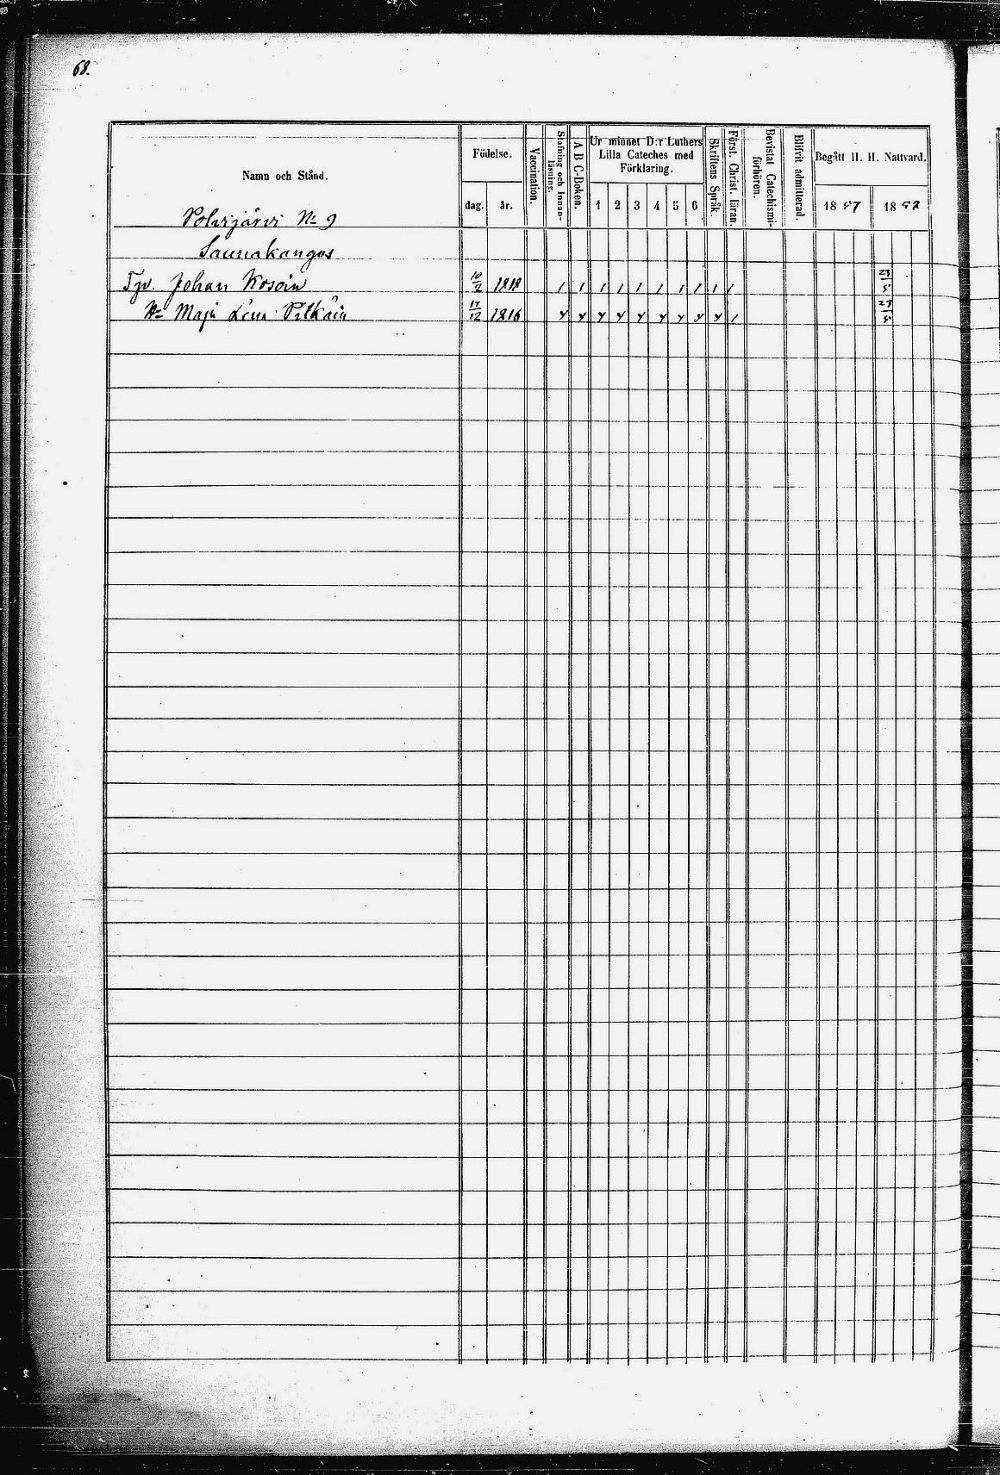 68.
Namn och Stånd.
Födelse.
dag.
år.
Vaccination.
Stafning och Innan-
läsning.
A B C-Boken.
Ur minnet D:r Luthers
Lilla Cateches med
Förklaring.
1 2 3 4 5 6
Skriftens Språk.
Först. Christ. läran.
Bevistat Catechismi-
förhören.
Blifvit admitterad.
Begått H. H. Nattvard.
18 57
18 58
Polvijärvi No 9
Saunakangas
Johan Kosoin 10/2 1818 / / / / / / / / / /
Maja Lena 17/12 1816